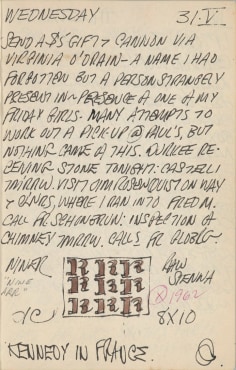 WEDNESDAY 31·V·
SEND A $5 GIFT > CANNON VIA
VIRGINIA O'DRAIN - A NAME I HAD
FORGOTTEN BUT A PERSON STRANGELY
PRESENT IN - PRESENCE @ ONE OF MY
FRIDAY GIRLS. MANY ATTEMPTS TO
WORK OUT A PICK-UP @ PAUL'S, BUT
NOTHING CAME OF THIS. DURKEE RE-
CEIVING STONE TONIGHT: CASTELLI
TMRROW. VISIT JIM ROSENQUIST ON WAY
> CHRS, WHERE I RAN INTO FRED M.
CALL FR SCHINERUN: INSPECTION OF
CHIMNEY TMRROW. CALLS FR
NINER
"NINE
RRR"
RAW
SIENNA
R 1962
8X10
KENNEDY IN FRANCE.